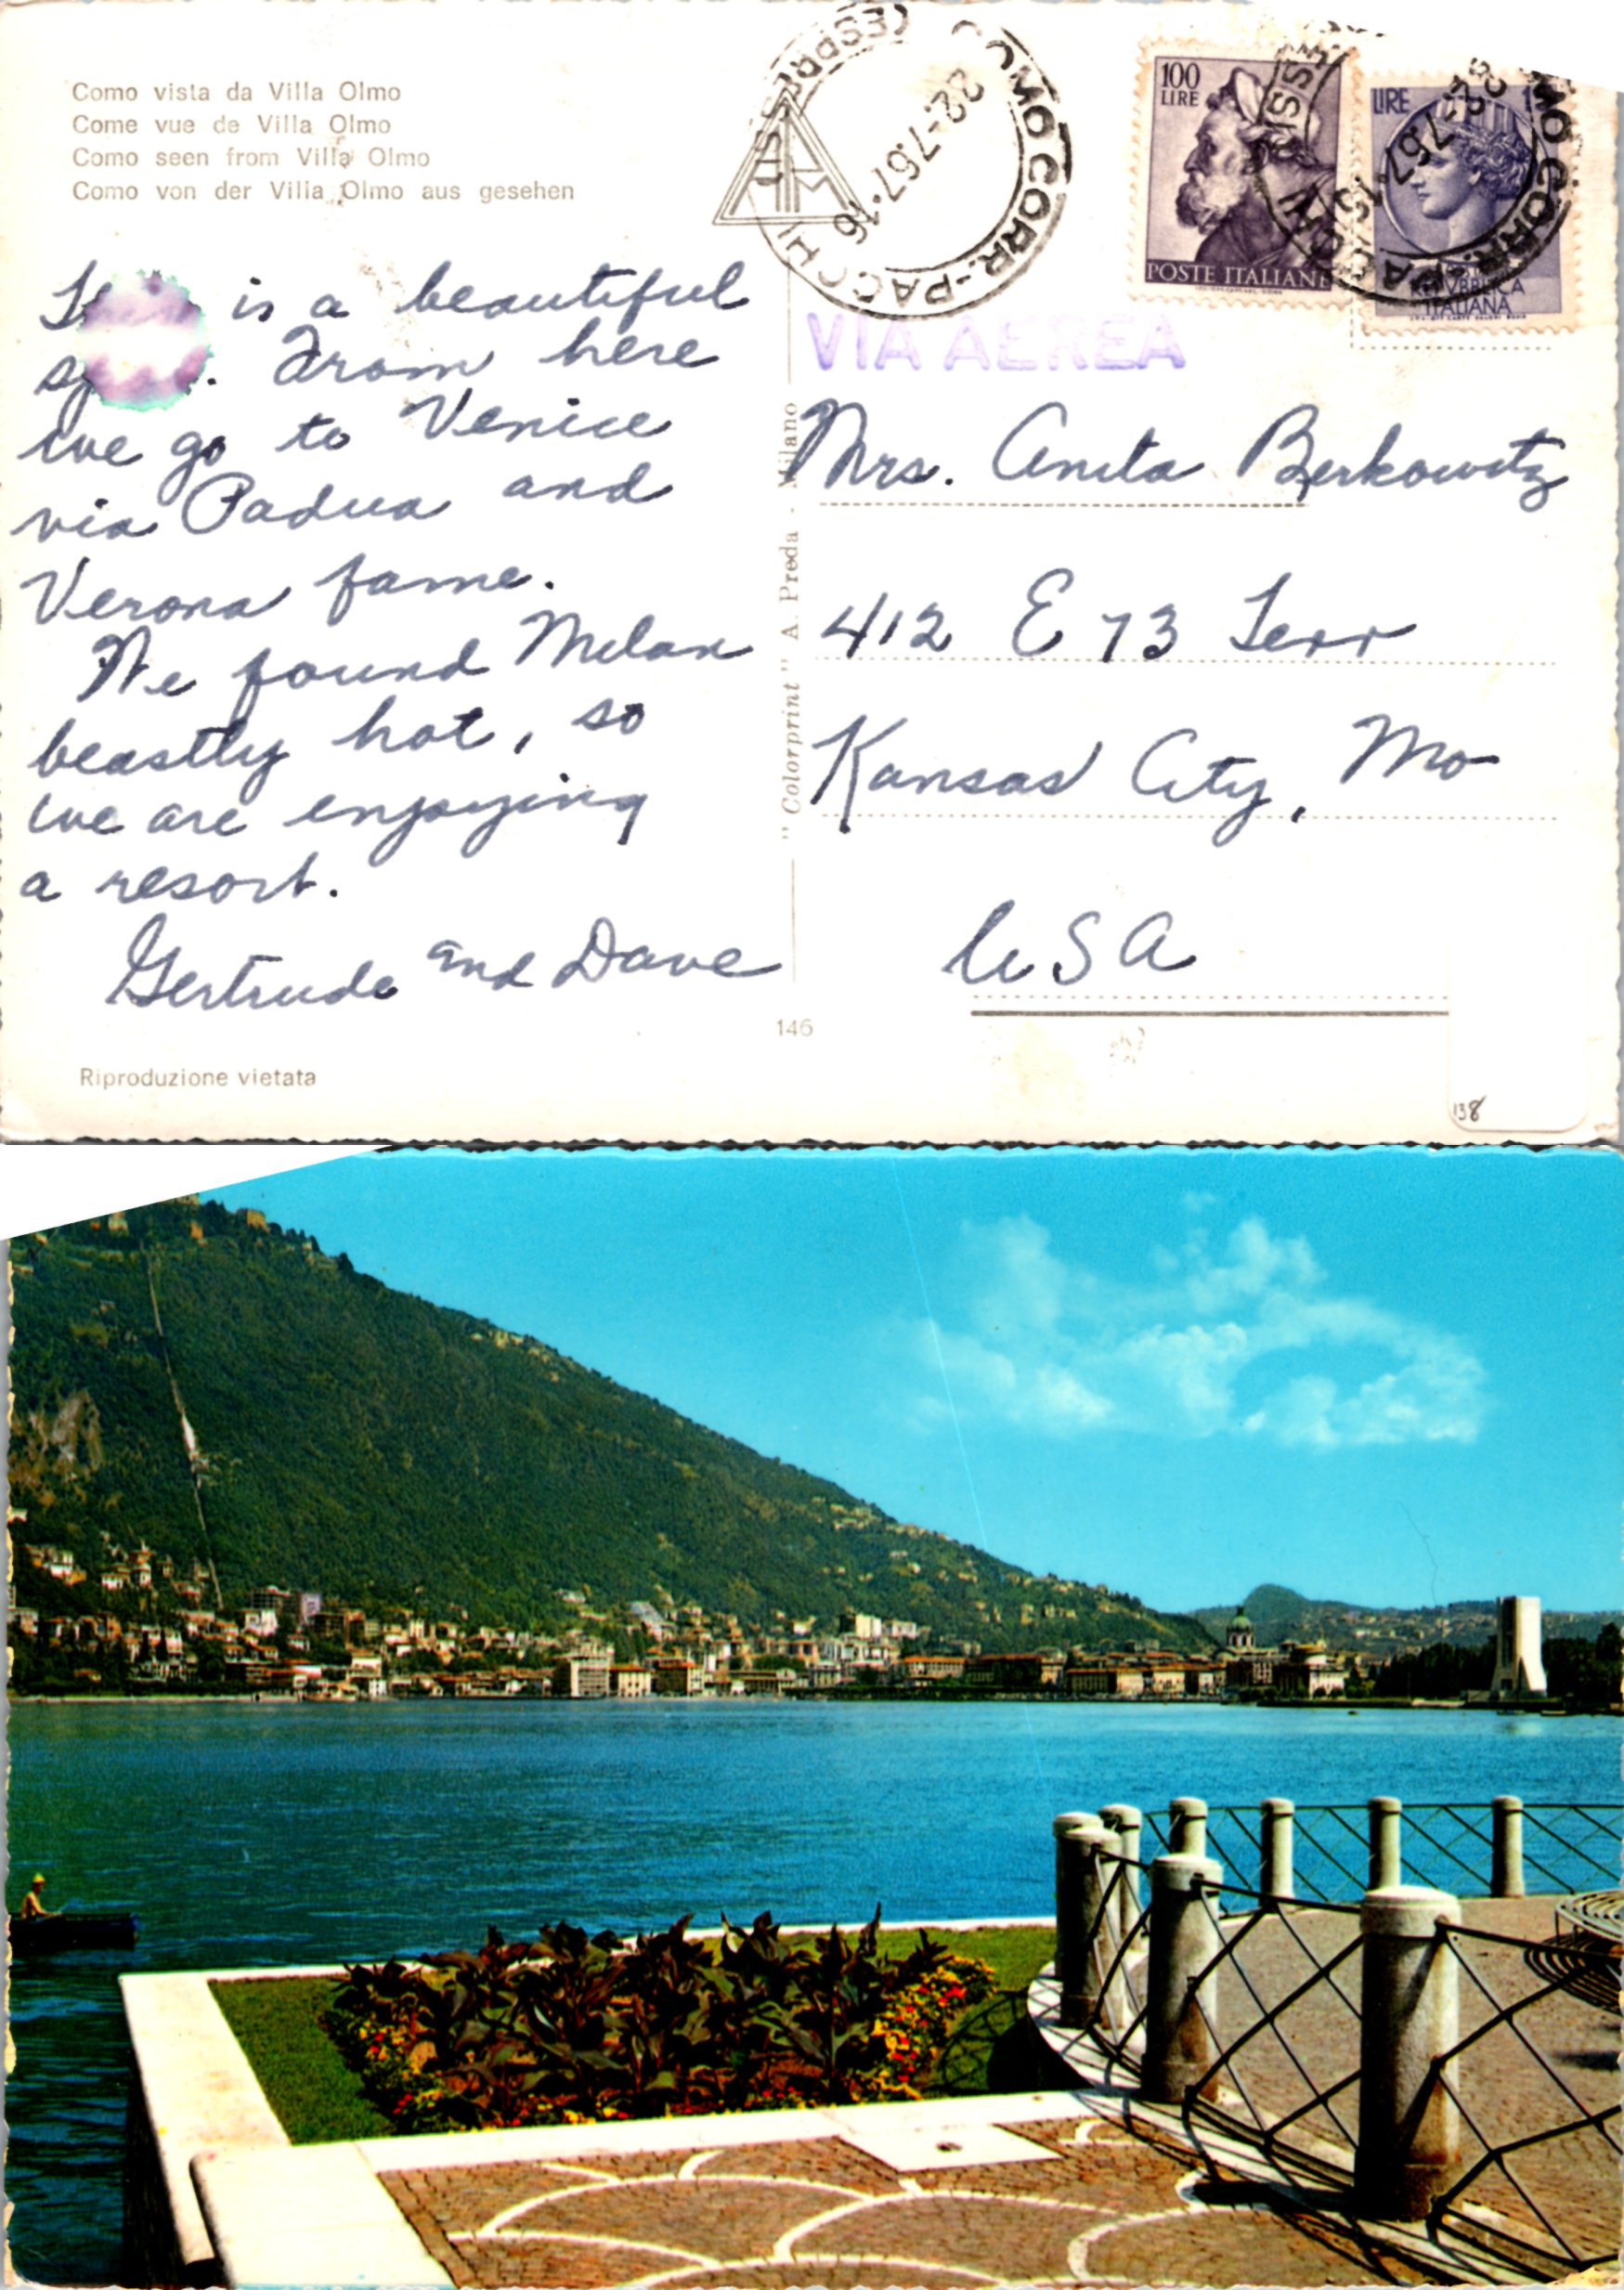 Como vista da Villa Olmo
Come vue de Villa Olmo
Como seen from Villa Olmo
Como von der Villa Olmo aus gesehen
is a beautiful
. From here
we go to Venice
via Padua and
Verona fame.
We found Milan
beastly hot, so
we are enjoying
a resort.
Gertrude and Dave
Riproduzione vietata
146
"Colorprint" A. Preda - Milano
COMO CORR.-PACCHI
22.-7.67.16
100
LIRE
POSTE ITALIANE
LIRE
ITALIANA
COMO CORR.-PACCHI
22.-7.67.16
VIA AEREA
Mrs. Anita Berkowitz
412 E 73 Terr
Kansas City, Mo
USA
138